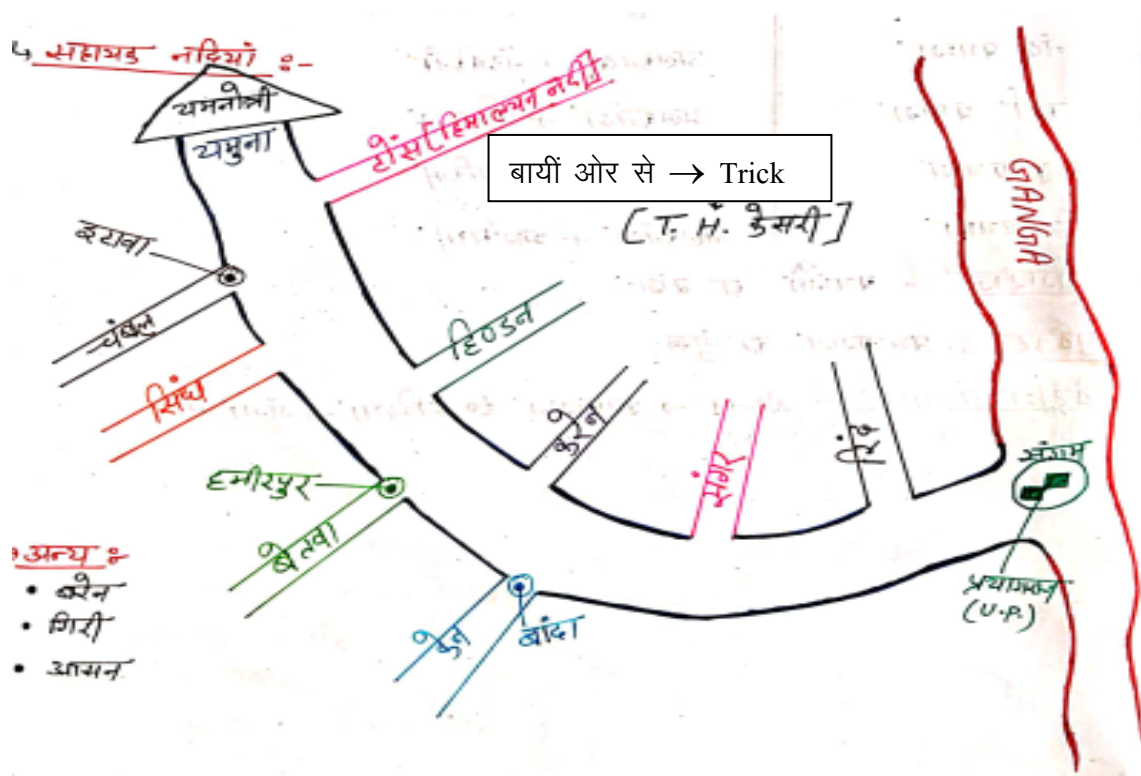 ↳ सहायक नदियां :-
यमनोत्री
यमुना
टोंस [हिमालयन नदी]
बायीं ओर से → Trick
[T. हं. केसरी]
GANGA
इटावा
चंबल
हिण्डन
सिंध
करेन
सेंगर
रिंद
संगम
हमीरपुर
बेतवा
प्रयागराज
(U.P.)
केन
बांदा
अन्य :-
• बरेन
• गिरी
• आसन